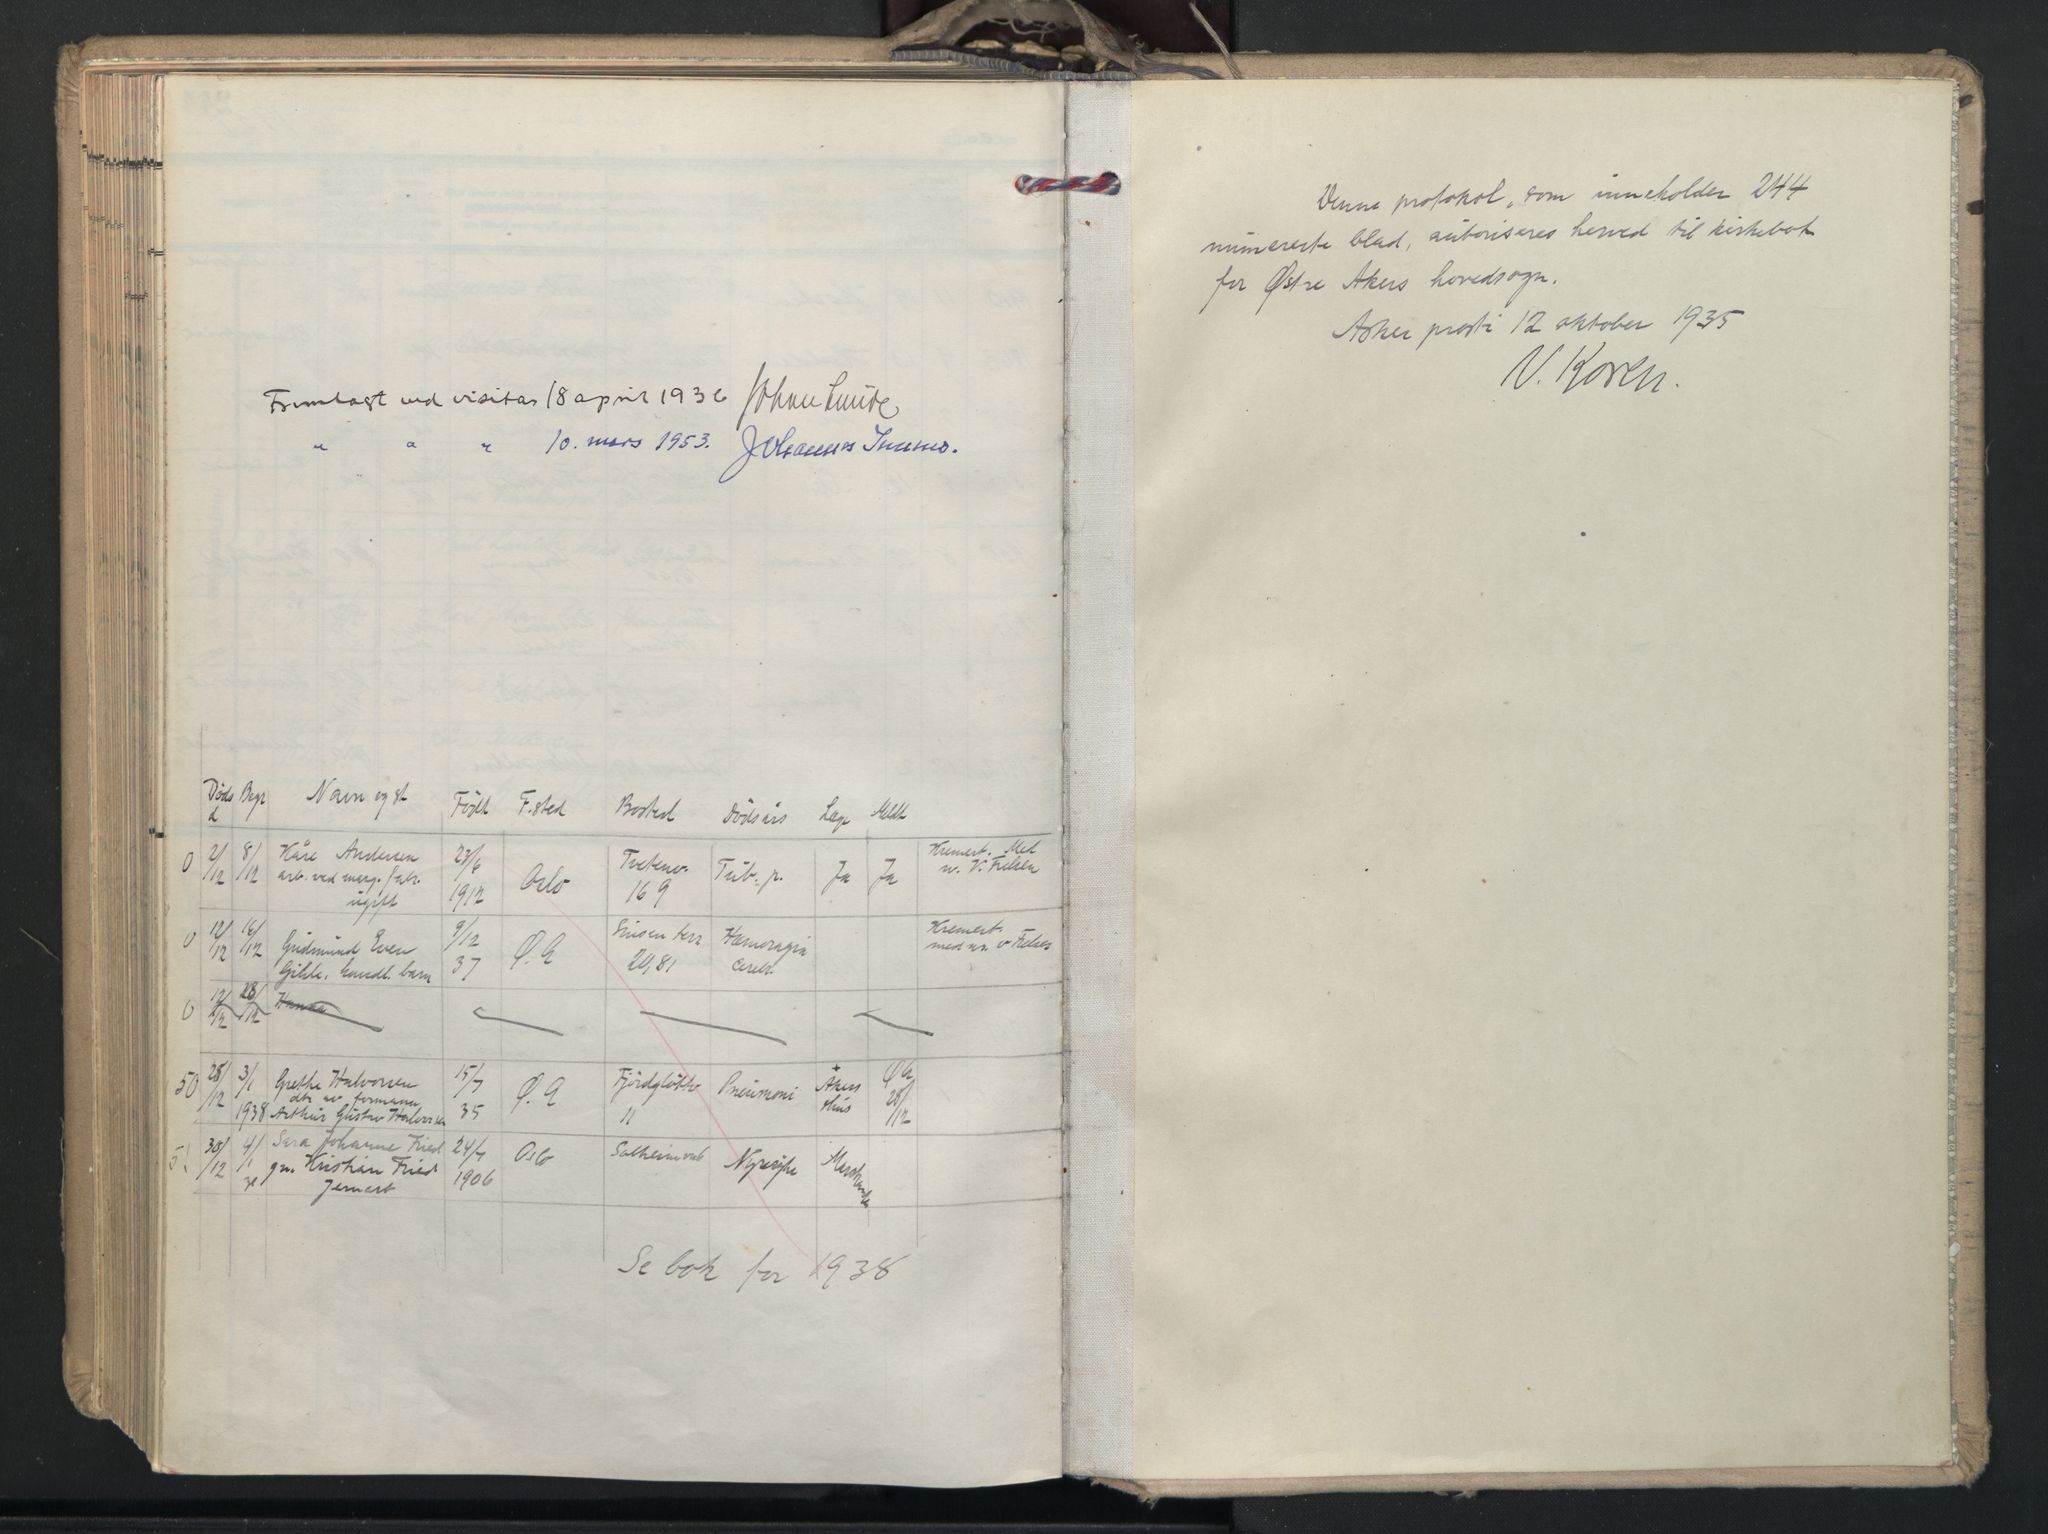 Fremlagt ved visitas 18 april 1936 Johan Lunde
" " " 10. mars 1953. Johannes Smemo.
Døds Begr Navn og st Født F.sted Bosted Dødsårs Læge Meldt
d
0 2/12 8/12 Kåre Andersen 23/6 1912 Oslo Tvetenv. 169 Tub. p. Ja Ja Kremert. Med
arb. ved marg. fabr.
ugift
0 12/12 16/12 Gudmund Even 9/12 37 Ø. A Sinsen terr 20, 81 Hæmoragia cerebr. Kremert
Gihle, handl. barn
0 12/12 28/12 Hanna
50 28/12 3/1 1938 Grethe Halvorsen 15/7 35 Ø. A Fjordgløtt 11 Pneumoni Akers hus Ø A 28/12
dtr av formann
Arthur Gustav Halvorsen
51 30/12 4/1 38 Sara Johanne Fried 24/7 1906 Oslo Solheim Nyresyke
gm. Kristian Fried
Jernarb
Se bok for 1938
Denne protokol, som inneholder 244
numererte blad, autoriseres herved til kirkebok
for Østre Akers hovedsogn.
Asker prosti 12 oktober 1935
V. Koren.